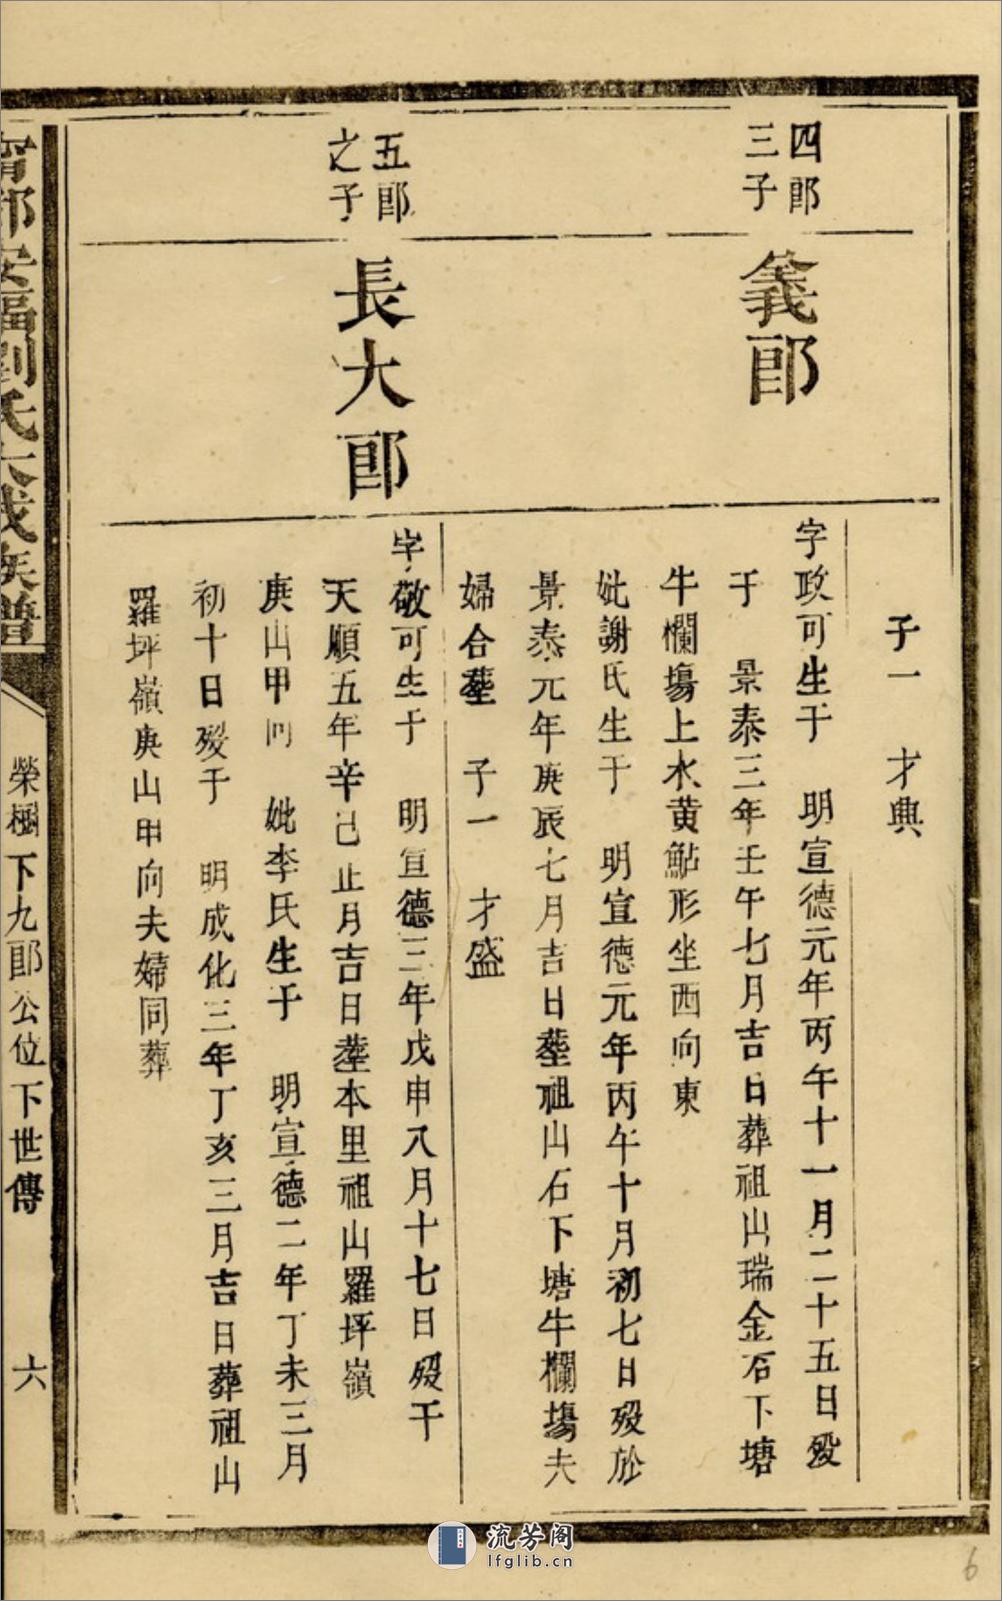 子一 才興
四郎
三子
義郎
字政可生于 明宣德元年丙午十一月二十五日殁
于 景泰三年壬午七月吉日葬祖山瑞金石下塘
牛欄塲上水黄鮎形坐西向東
妣謝氏生于 明宣德元年丙午十月初七日殁於
景泰元年庚辰七月吉日塟祖山石下塘牛欄塲夫
婦合塟 子一 才盛
五郎
之子
長大郎
字敬可生于 明宣德三年戊申八月十七日殁于
天順五年辛己正月吉日塟本里祖山羅坪嶺
庚山甲向 妣李氏生于 明宣德二年丁未三月
初十日殁于 明成化三年丁亥三月吉日葬祖山
羅坪嶺庚山甲向夫婦同葬
安福劉氏大成族譜
榮極下九郎公位下世傳
六
流芳阁
lfglib.cn
6